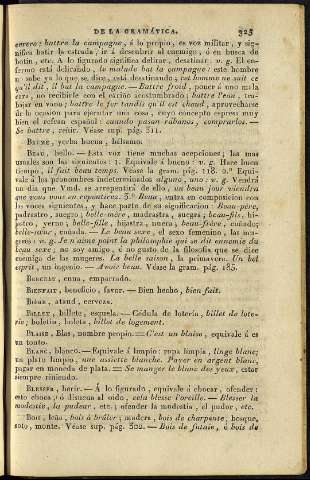 DE LA GRAMÁTICA. 325
carero: battre la campagne, á lo propio, es voz militar, y sig-
nifica batir la estrada, ir á descubrir al enemigo, ó en busca de
botin, etc. A lo figurado significa delirar, desatinar: v. g. El en-
fermo está delirando, le malade bat la campagne: este hombre
no sabe ya lo que se dice, está desatinando; cet homme ne sait ce
qu'il dit, il bat la campagne. — Battre froid, poner á uno mala
cara, no recibirle con el cariño acostumbrado; battre l'eau, tra-
bajar en vano; battre le fer tandis qu'il est chaud, aprovecharse
de la ocasion para ejecutar una cosa, cuyo concepto espresa muy
bien el refran español: cuando pasan rábanos, comprarlos. —
Se battre, reñir. Véase sup. pág. 311.
BAUME, yerba buena, bálsamo.
BEAU, bello. — Esta voz tiene muchas acepciones; las mas
usuales son las siguientes: 1. Equivale á bueno: v. g. Hace buen
tiempo, il fait beau temps. Véase la gram. pág. 118. 2.º Equi-
vale á los pronombres indeterminados alguno, uno: v. g. Vendrá
un dia que Vmd. se arrepentirá de ello, un beau jour viendra
que vous vous en repentirez. 3.º Beau, entra en composicion con
las voces siguientes, y hace parte de su significacion: Beau-père,
padrastro, suegro; belle-mère, madrastra, suegra; beau-fils, hi-
jastro, yerno; belle-fille, hijastra, nuera; beau-frère, cuñado;
belle-sœur, cuñada. — Le beau sexe, el sexo femenino, las mu-
geres: v. g. Je n'aime point la philosophie qui se dit ennemie du
beau sexe; no soy amigo, ó no gusto de la filosofía que se dice
enemiga de las mugeres. La belle saison, la primavera. Un bel
esprit, un ingenio. — Avoir beau. Véase la gram. pág. 185.
BERCEAU, cuna, emparrado.
BIENFAIT, beneficio, favor. — Bien hecho, bien fait.
BIÈRE, ataud, cerveza.
BILLET, billete, esquela. — Cédula de lotería, billet de lote-
rie; boletin, boleta, billet de logement.
BLAISE, Blas, nombre propio. — C'est un blaise, equivale á es
un tonto.
BLANC, blanco. — Equivale á limpio: ropa limpia, linge blanc;
un plato limpio, une assiette blanche. Payer en argent blanc,
pagar en moneda de plata. — Se manger le blanc des yeux, estar
siempre riñendo.
BLESSER, herir. — A lo figurado, equivale á chocar, ofender:
esto choca, ó disuena al oido, cela blesse l'oreille. — Blesser la
modestie, la pudeur, etc.; ofender la modestia, el pudor, etc.
BOIS, leña, bois á brûler; madera, bois de charpente, bosque,
soto, monte. Véase sup. pág. 502. — Bois de futaie, ó bois de